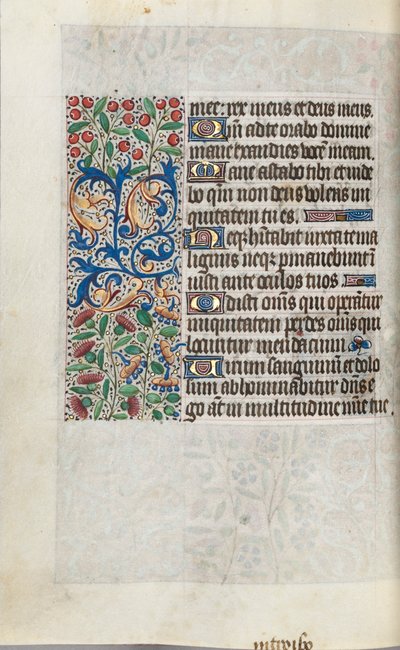 mee: rex meus et deus meus.
Qm ad te orabo domine
mane exaudies vocē meam.
Mane astabo tibi et vide
bo qm non deus volens ini
quitatem tu es.
Neqꝫ hītabit iuxta te ma
lignus neqꝫ pmanebunt i
iusti ante oculos tuos
Odisti om̄s qui operātur
iniquitatem perdes om̄s qui
locuntur mendacium
Uirum sanguinū et dolo
sum abhominabitur dn̄s e
go aūt in multitudine mīe tue.
introibo